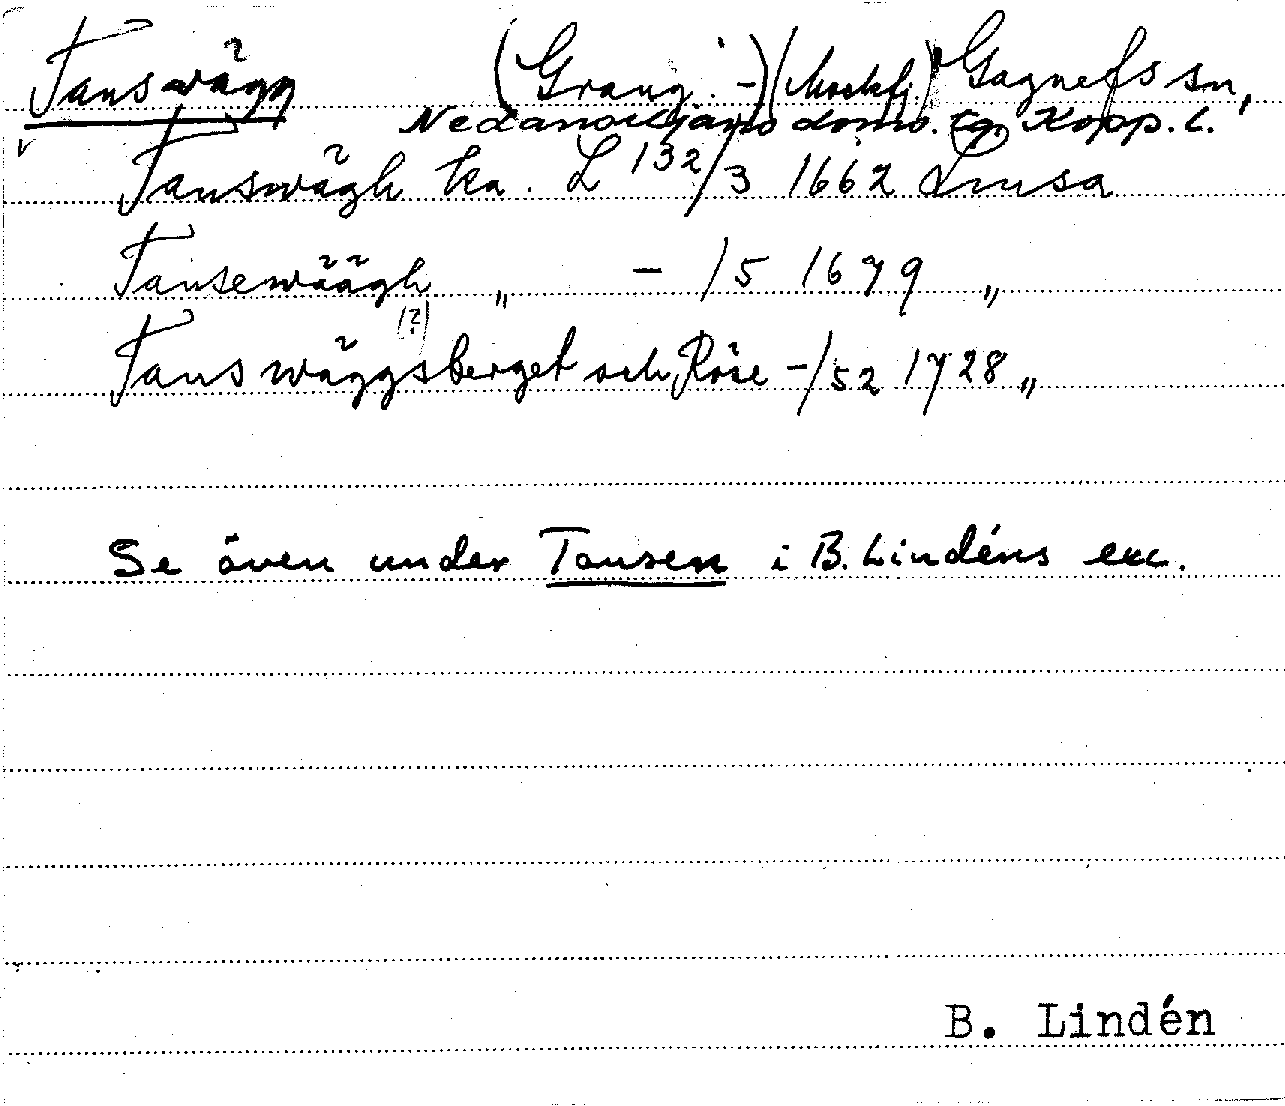 Tanswägg (Grang. -) (Mockfj.) Gagnefs sn,
Nedansiljans doms. Kopp. l.
Tanswägh ka. L 132/3 1662 Smsa
Tansewäägh „ - /5 1679 „
(?)
Tanswäggsberget och Röse -/52 1728 „
Se även under Tansen i B. Lindéns exc.
B. Lindén